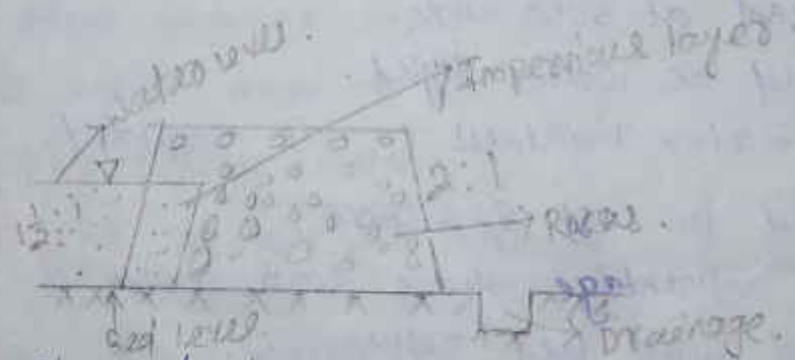 water level.
Impervious layer
2:1
1½:1
Rocks.
Bed level
Drainage.